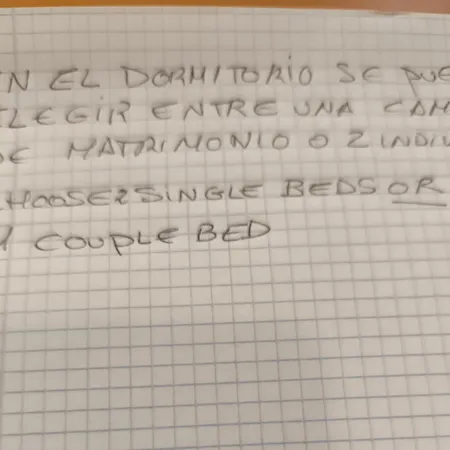 EN EL DORMITORIO SE PUE
ELEGIR ENTRE UNA CAM
DE MATRIMONIO O 2 INDIV
CHOOSE 2 SINGLE BEDS OR
1 COUPLE BED